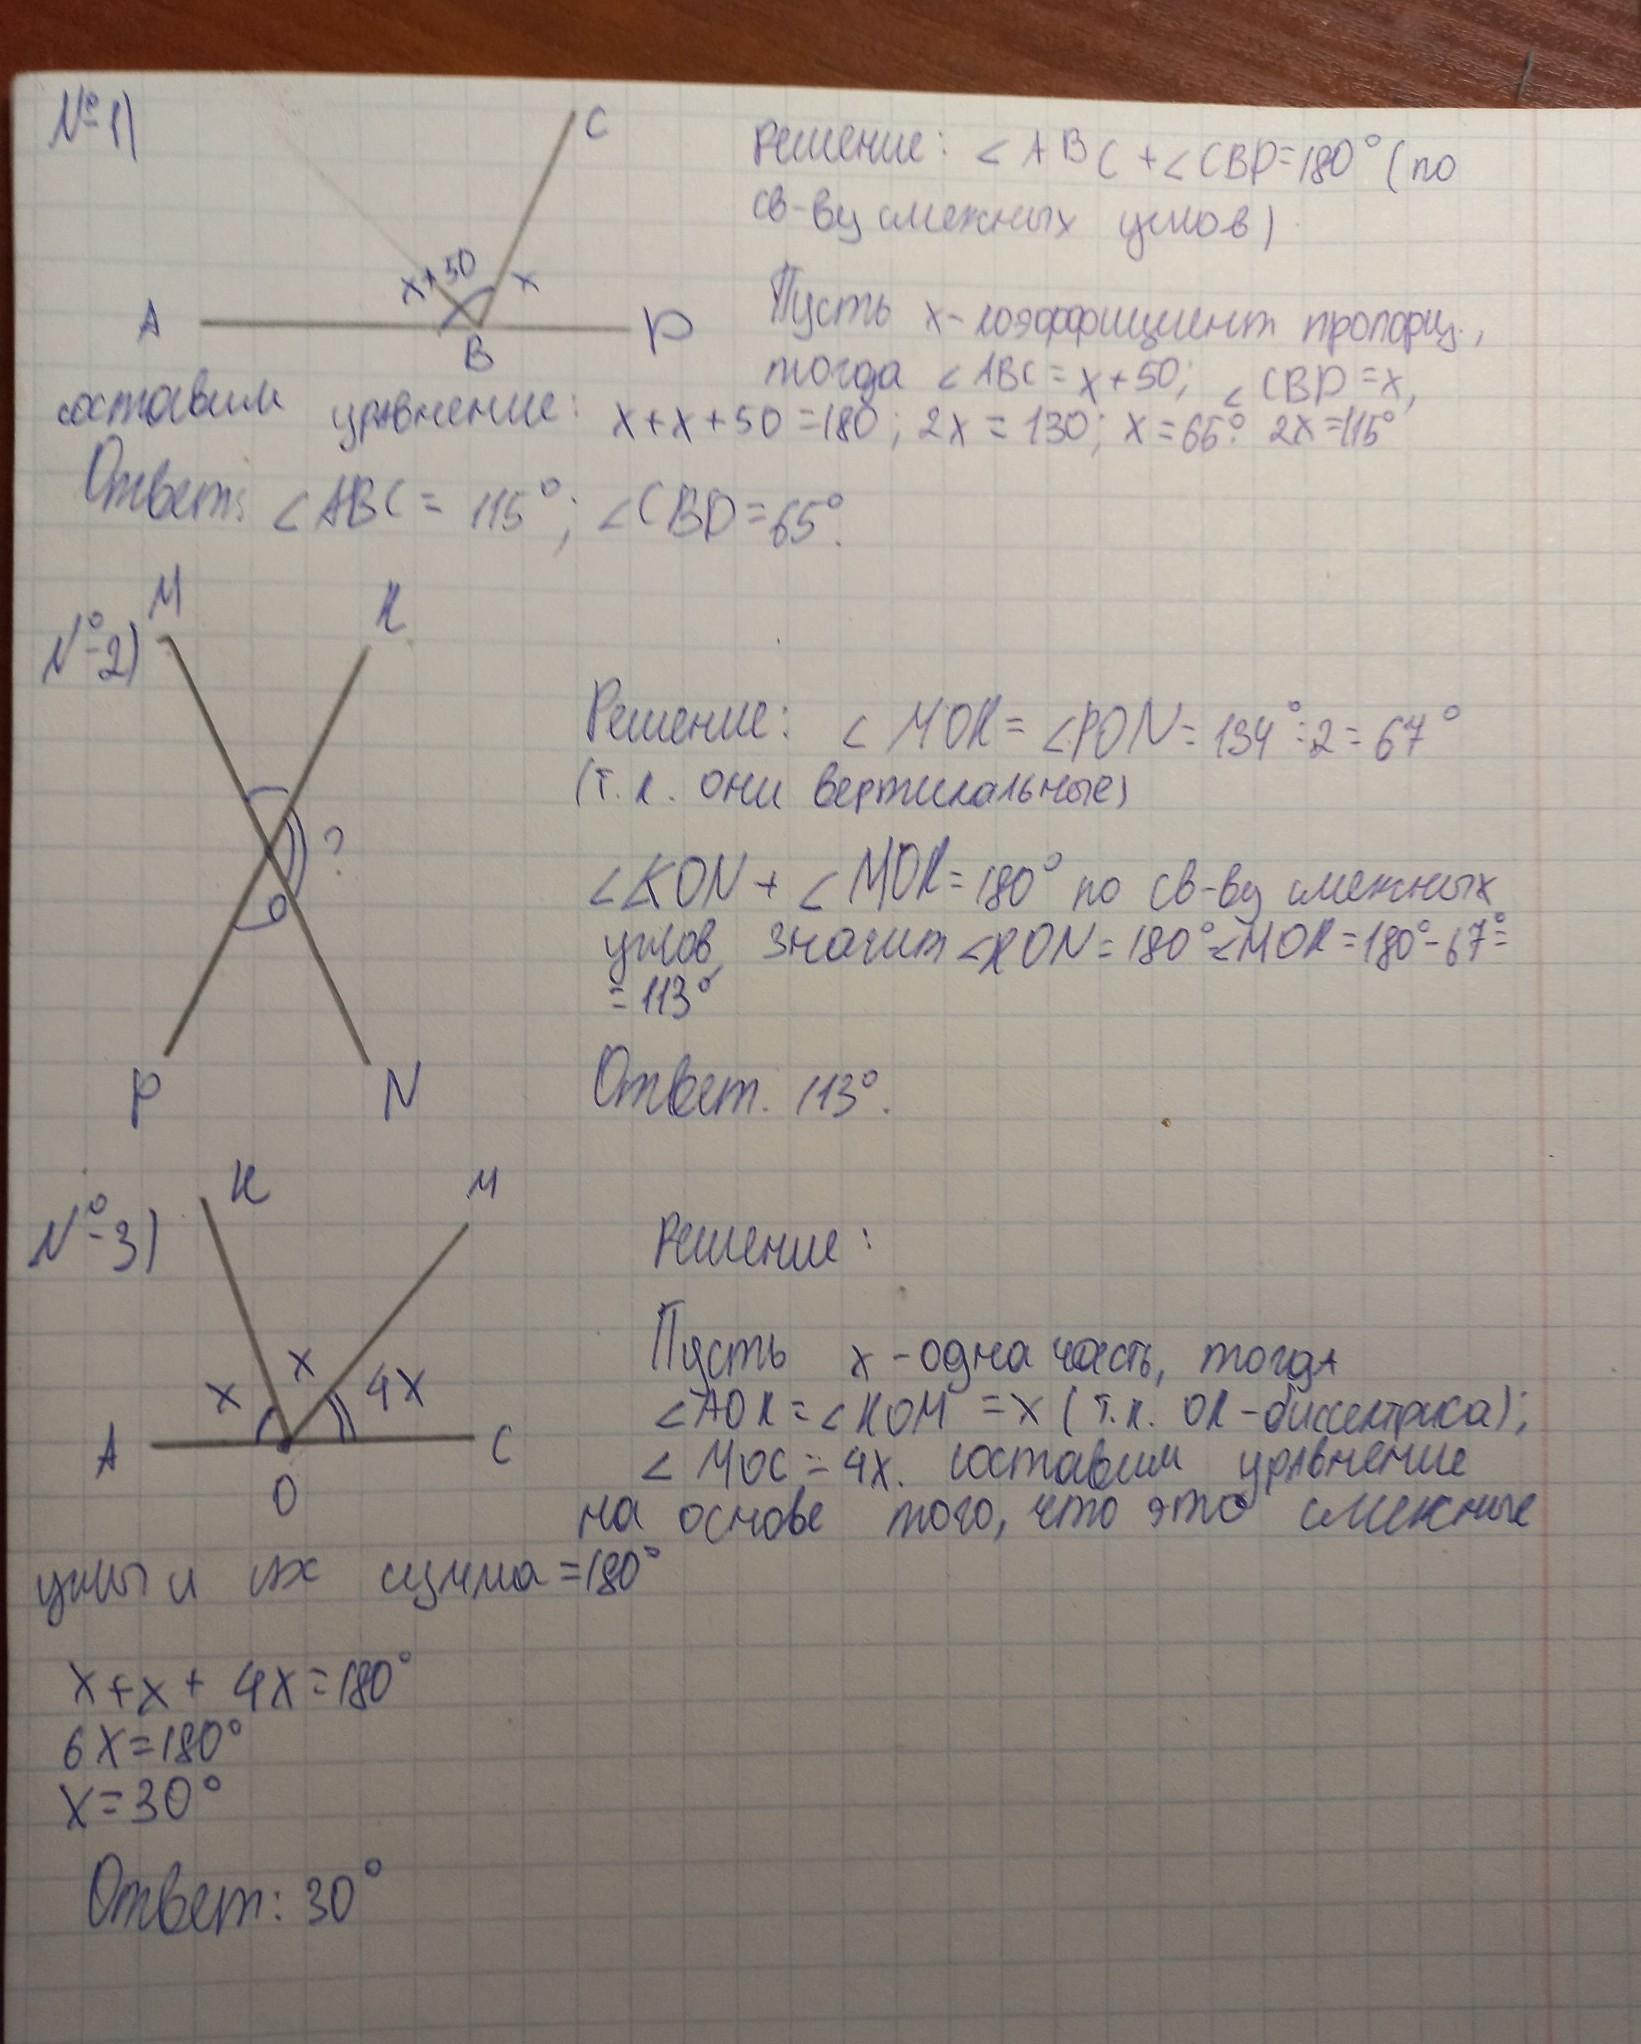 №1)
C
Решение: ∠ABC+∠CBD=180° (по
св-ву смежных углов)
x+50 x
A B D
Пусть x-коэффициент пропорц.,
тогда ∠ABC=x+50; ∠CBD=x,
составим уравнение: x+x+50=180; 2x=130; x=65°. 2x=115°
Ответ: ∠ABC=115°; ∠CBD=65°.
M K
№2)
Решение: ∠MOK=∠PON=134°:2=67°
(т.к. они вертикальные)
?
∠KON+∠MOK=180° по св-ву смежных
O
углов, значит ∠KON=180°-∠MOK=180°-67°=
=113°
P N
Ответ. 113°.
K M
№3)
Решение:
x x 4x
Пусть x-одна часть, тогда
∠AOK=∠KOM=x (т.к. OK-биссектриса);
A C
∠MOC=4x. составим уравнение
O
на основе того, что это смежные
углы и их сумма=180°
x+x+4x=180°
6x=180°
x=30°
Ответ: 30°